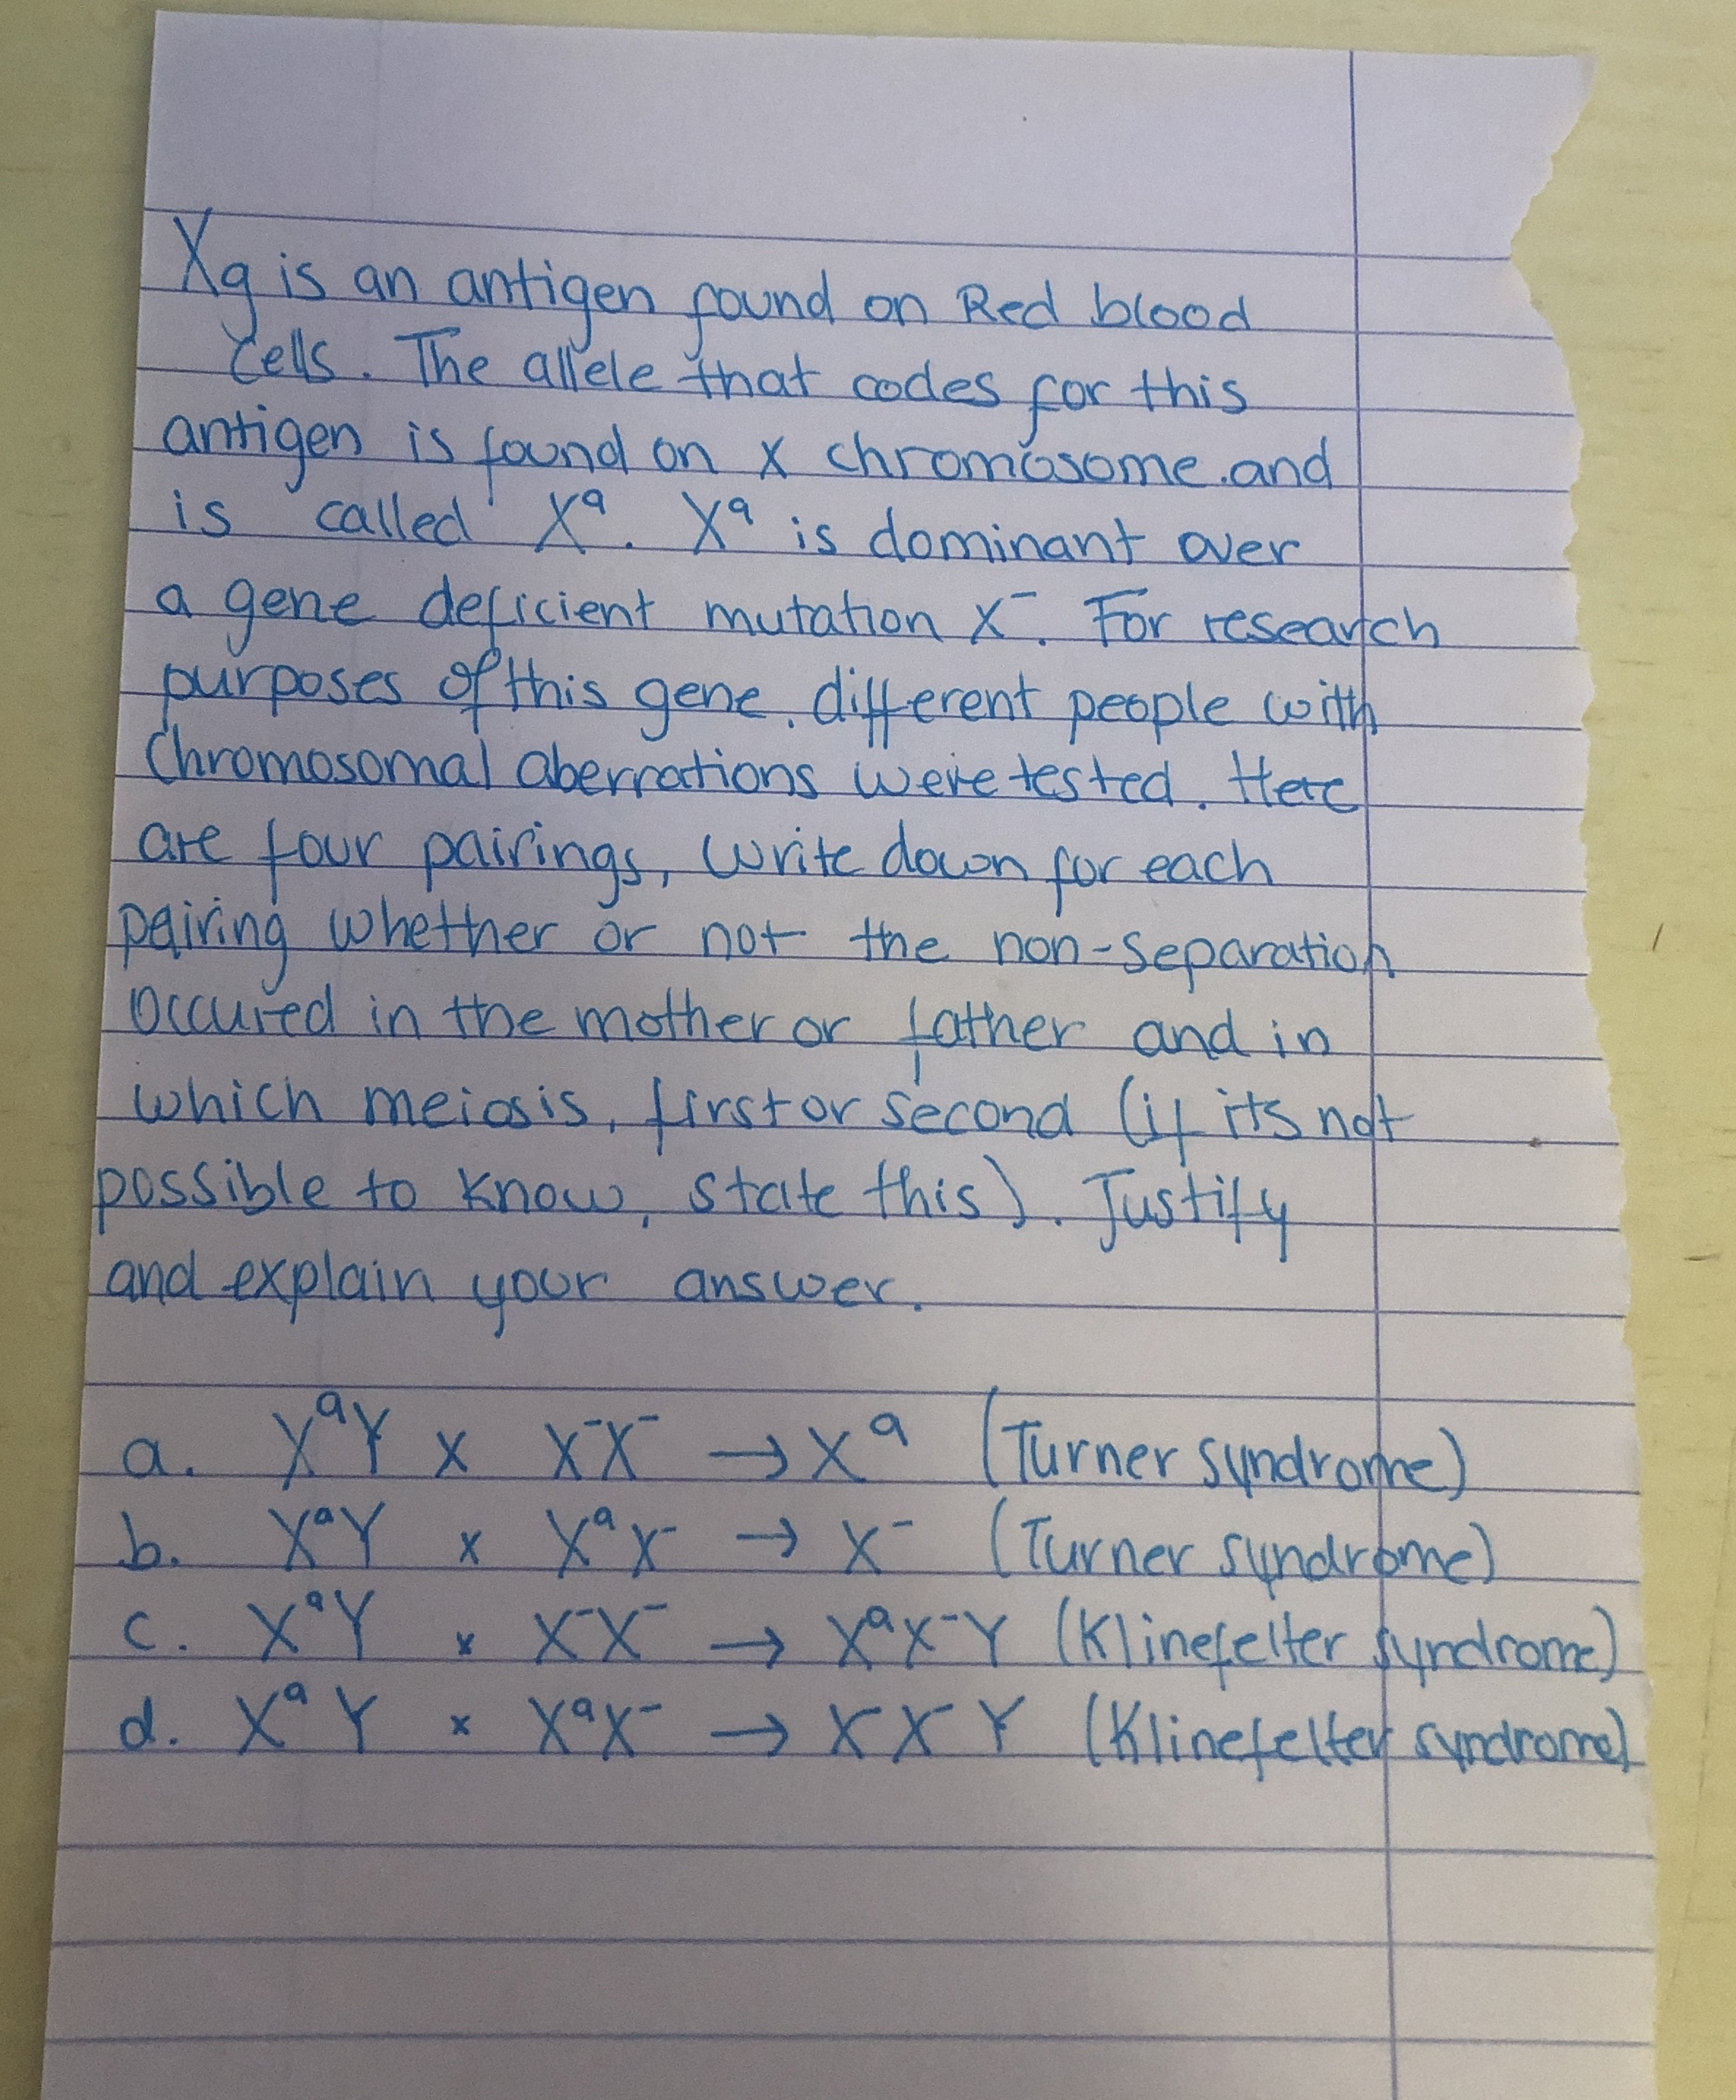 Xg is an antigen found on Red blood
Cells. The allele that codes for this
antigen is found on X chromosome.and
is called Xᵃ. Xᵃ is dominant over
a gene deficient mutation X⁻. For research
purposes of this gene. different people with
Chromosomal aberrations were tested. Here
are four pairings, write down for each
pairing whether or not the non-separation
occured in the mother or father and in
which meiosis, first or second (if its not
possible to know, state this). Justify
and explain your answer.
a. XᵃY x X⁻X⁻ → Xᵃ (Turner syndrome)
b. XᵃY x XᵃX⁻ → X⁻ (Turner syndrome)
c. XᵃY x X⁻X⁻ → XᵃX⁻Y (Klinefelter syndrome)
d. XᵃY x XᵃX⁻ → X⁻X⁻Y (Klinefelter syndrome)